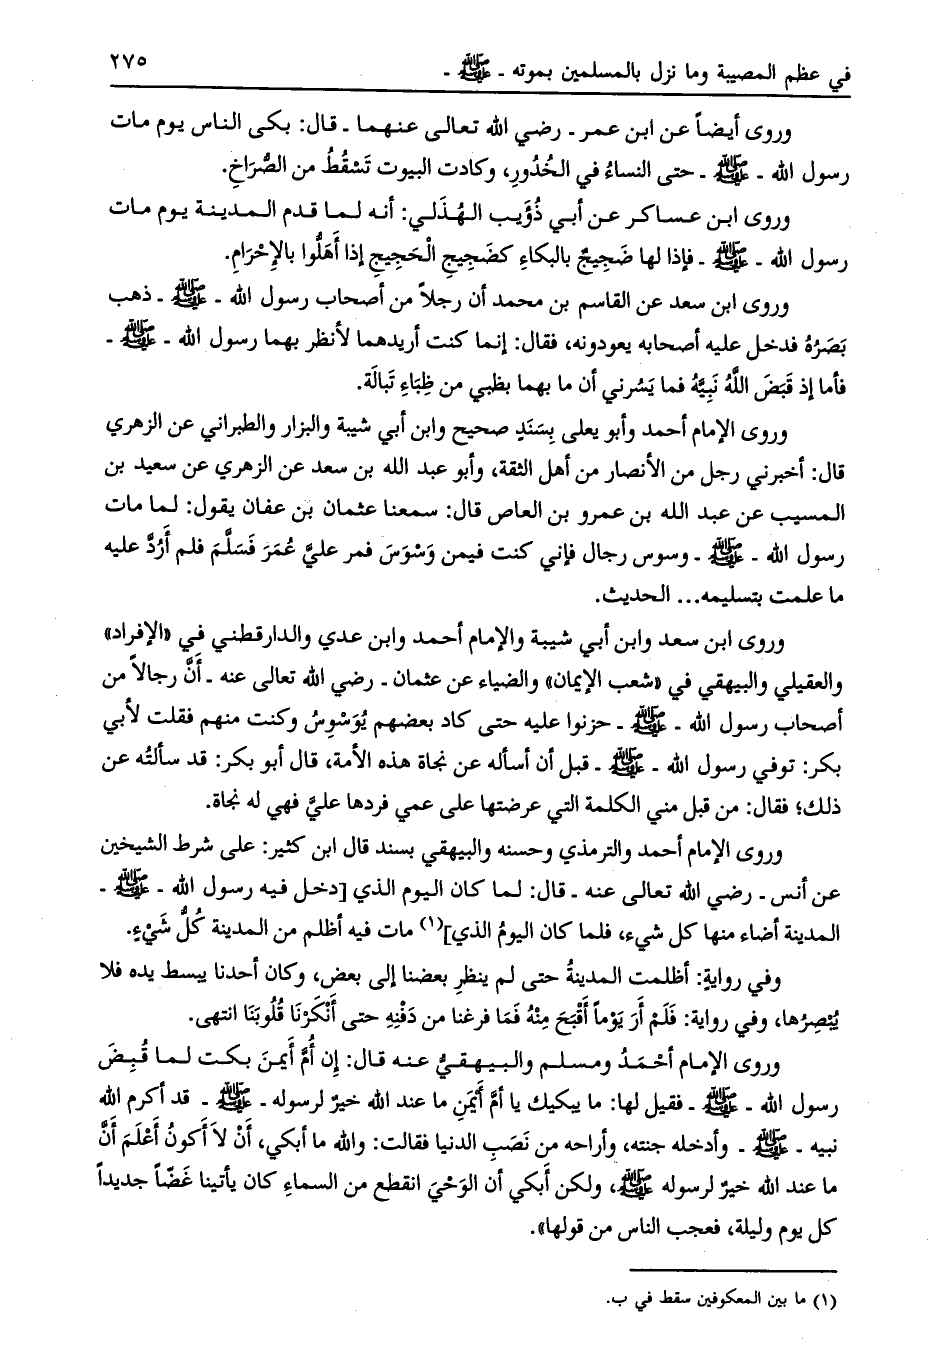 في عظم المصيبة وما نزل بالمسلمين بموته ـ ﷺ ـ ٢٧٥
وروى أيضاً عن ابن عمر ـ رضي الله تعالى عنهما ـ قال: بكى الناس يوم مات
رسول الله ـ ﷺ ـ حتى النساءُ في الخُدُورِ، وكادت البيوت تَسْقُطُ من الصُّرَاخِ.
وروى ابن عساكر عن أبي ذُؤَيب الهُذَلي: أنه لما قدم المدينة يوم مات
رسول الله ـ ﷺ ـ فإذا لها ضَجِيجٌ بالبكاءِ كضَجِيجِ الْحَجِيجِ إذا أَهَلُّوا بالإِحْرَامِ.
وروى ابن سعد عن القاسم بن محمد أن رجلاً من أصحاب رسول الله ـ ﷺ ـ ذهب
بَصَرُهُ فدخل عليه أصحابه يعودونه، فقال: إنما كنت أريدهما لأنظر بهما رسول الله ـ ﷺ ـ
فأما إذ قَبَضَ اللَّهُ نَبِيَّهُ فما يَسُرني أن ما بهما بظبي من ظِبَاءِ تَبالَة.
وروى الإمام أحمد وأبو يعلى بِسَنَدٍ صحيح وابن أبي شيبة والبزار والطبراني عن الزهري
قال: أخبرني رجل من الأنصار من أهل الثقة، وأبو عبد الله بن سعد عن الزهري عن سعيد بن
المسيب عن عبد الله بن عمرو بن العاص قال: سمعنا عثمان بن عفان يقول: لما مات
رسول الله ـ ﷺ ـ وسوس رجال فإني كنت فيمن وَسْوَسَ فمر عليَّ عُمَرَ فَسَلَّمَ فلم أَرُدَّ عليه
ما علمت بتسليمه... الحديث.
وروى ابن سعد وابن أبي شيبة والإمام أحمد وابن عدي والدارقطني في «الإفراد»
والعقيلي والبيهقي في «شعب الإيمان» والضياء عن عثمان ـ رضي الله تعالى عنه ـ أَنَّ رجالاً من
أصحاب رسول الله ـ ﷺ ـ حزنوا عليه حتى كاد بعضهم يُوَسْوِسُ وكنت منهم فقلت لأبي
بكر: توفي رسول الله ـ ﷺ ـ قبل أن أسأله عن نجاة هذه الأمة، قال أبو بكر: قد سألتُه عن
ذلك؛ فقال: من قبل مني الكلمة التي عرضتها على عمي فردها عليَّ فهي له نجاة.
وروى الإمام أحمد والترمذي وحسنه والبيهقي بسند قال ابن كثير: على شرط الشيخين
عن أنس ـ رضي الله تعالى عنه ـ قال: لما كان اليوم الذي [دخل فيه رسول الله ـ ﷺ ـ
المدينة أضاء منها كل شيء، فلما كان اليومُ الذي](١) مات فيه أظلم من المدينة كُلُّ شَيْءٍ.
وفي روايةٍ: أظلمت المدينةُ حتى لم ينظرِ بعضنا إلى بعض، وكان أحدنا يبسط يده فلا
يُبْصِرُها، وفي رواية: فَلَمْ أَرَ يَوْماً أَقْبَحَ مِنْهُ فَمَا فرغنا من دَفْنِهِ حتى أَنْكَرْنَا قُلُوبَنَا انتهى.
وروى الإمام أحْمَدُ ومسلم والبيهقيُّ عنه قال: إن أُمَّ أَيمنَ بكت لما قُبِضَ
رسول الله ـ ﷺ ـ فقيل لها: ما يبكيك يا أمَّ أَيْمَنِ ما عند الله خيرٌ لرسوله ـ ﷺ ـ قد أكرم الله
نبيه ـ ﷺ ـ وأدخله جنته، وأراحه من نَصَبِ الدنيا فقالت: والله ما أبكي، أَنْ لاَ أَكونُ أَعْلَمَ أَنَّ
ما عند الله خيرٌ لرسوله ﷺ، ولكن أَبكي أن الوَحْيَ انقطع من السماءِ كان يأتينا غَضّاً جديداً
كل يوم وليلة، فعجب الناس من قولها».
(١) ما بين المعكوفين سقط في ب.